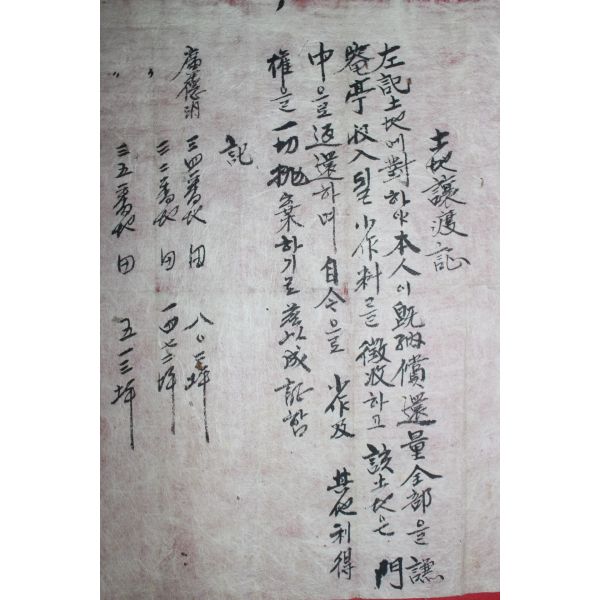 土地讓渡記
左記土地에對하야本人이旣納償還量全部을讓
菴亭收入될小作料를徵收하고該土地는門
中으로返還하며自今으로小作及其他利得
權을一切抛棄하기로玆以成証함
記
三四一番地 田 八〇三坪
三三二番地 田 一四七二坪
三五一番地 田 五一三坪